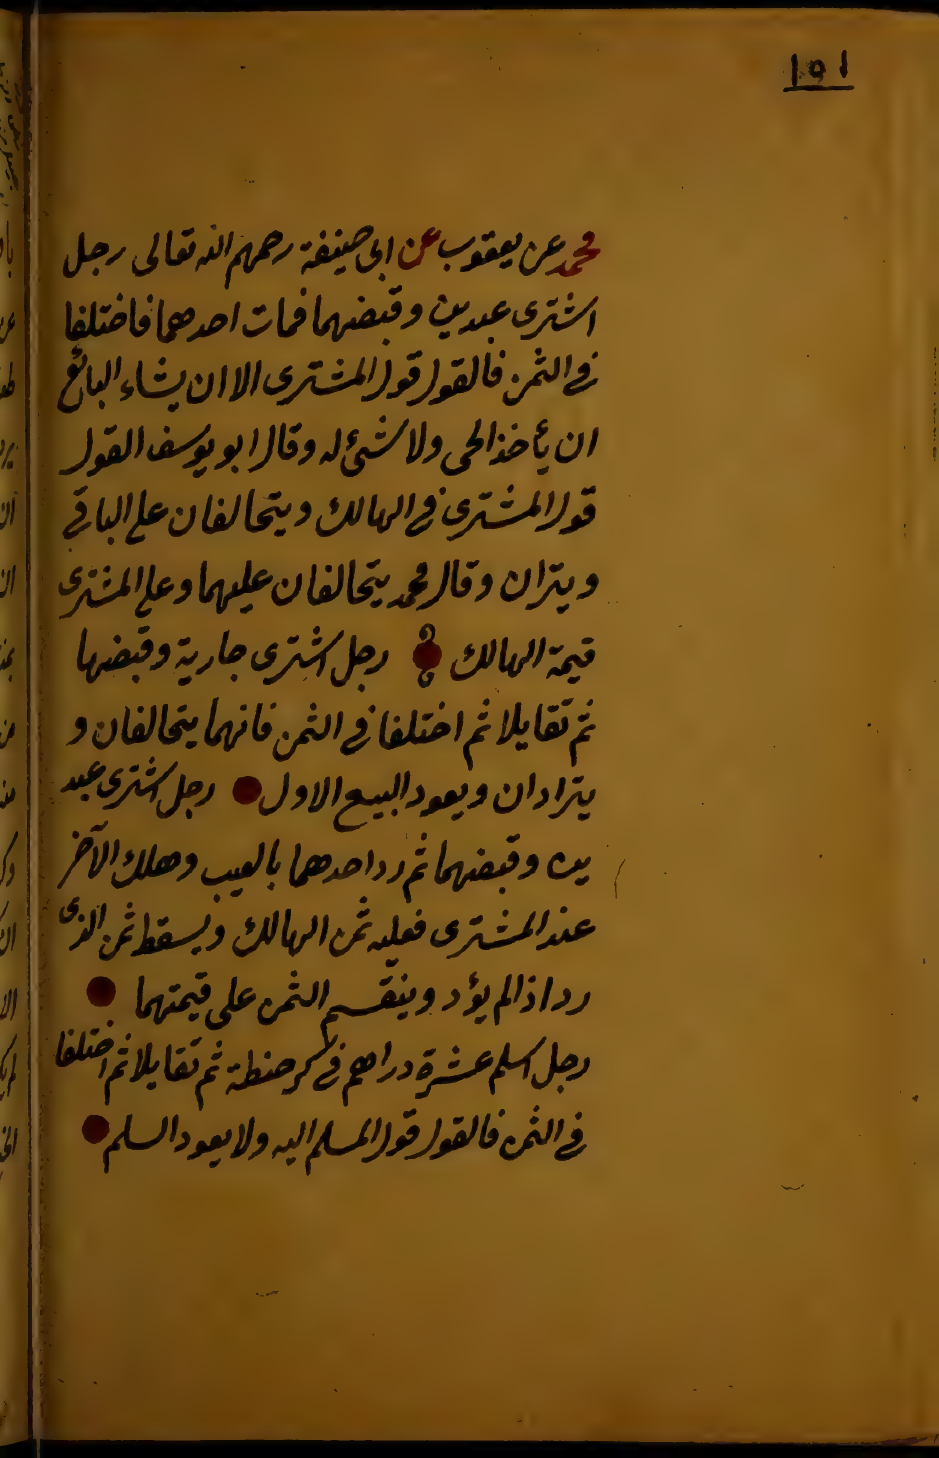 ١٥١
محمد عن يعقوب عن ابى حنيفة رحمهم الله تعالى رجل
اشترى عبدين وقبضهما فمات احدهما فاختلفا
فى الثمن فالقول قول المشترى الا ان يشاء البائع
ان يأخذ الحى ولا شئ له وقال ابو يوسف القول
قول المشترى فى الهالك ويتحالفان على الباقى
ويتران وقال محمد يتحالفان عليهما وعلى المشترى
قيمة الهالك رجل اشترى جارية وقبضها
ثم تقايلا ثم اختلفا فى الثمن فانهما يتحالفان و
يترادان ويعود البيع الاول رجل اشترى عبد
ين وقبضهما ثم رد احدهما بالعيب وهلك الآخر
عند المشترى فعليه ثمن الهالك ويسقط ثمن الذى
رد اذا لم يؤد وينقسم الثمن على قيمتهما
رجل اسلم عشرة دراهم فى كر حنطة ثم تقايلا ثم اختلفا
فى الثمن فالقول قول المسلم اليه ولا يعود السلم